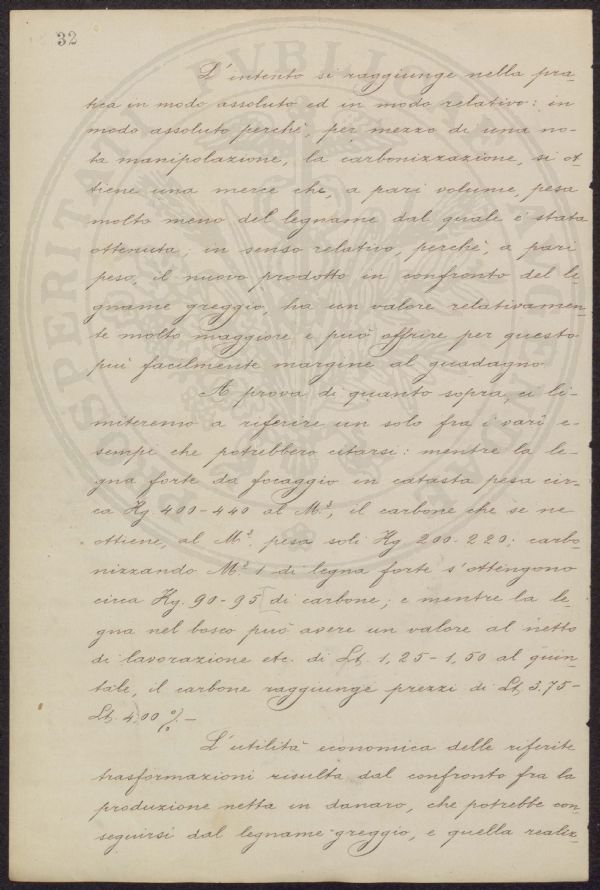 32
L'intento si raggiunge nella pra-
tica in modo assoluto ed in modo relativo: in
modo assoluto perchè, per mezzo di una no-
ta manipolazione, la carbonizzazione, si ot-
tiene una merce che, a pari volume, pesa
molto meno del legname dal quale è stata
ottenuta; in senso relativo, perchè, a pari
peso, il nuovo prodotto in confronto del le-
gname greggio, ha un valore relativamen-
te molto maggiore e può offrire per questo
più facilmente margine al guadagno
A prova di quanto sopra, ci li-
miteremo a riferire un solo fra i varî e-
sempi che potrebbero citarsi: mentre la le-
gna forte da focaggio in catasta pesa cir-
ca Kg 400-440 al M.³, il carbone che se ne
ottiene, al M.³ pesa soli Kg 200-220; carbo-
nizzando M.³ 1 di legna forte s'ottengono
circa Kg. 90-95 di carbone; e mentre la le-
gna nel bosco può avere un valore al netto
di lavorazione etc. di Lt. 1,25-1,50 al quin-
tale, il carbone raggiunge prezzi di Lt. 3.75-
Lt. 4,00 %-
L'utilità economica delle riferite
trasformazioni risulta dal confronto fra la
produzione netta in danaro, che potrebbe con-
seguirsi dal legname greggio, e quella realiz-
PROSPERITATI PVBLICAE AVGENDAE